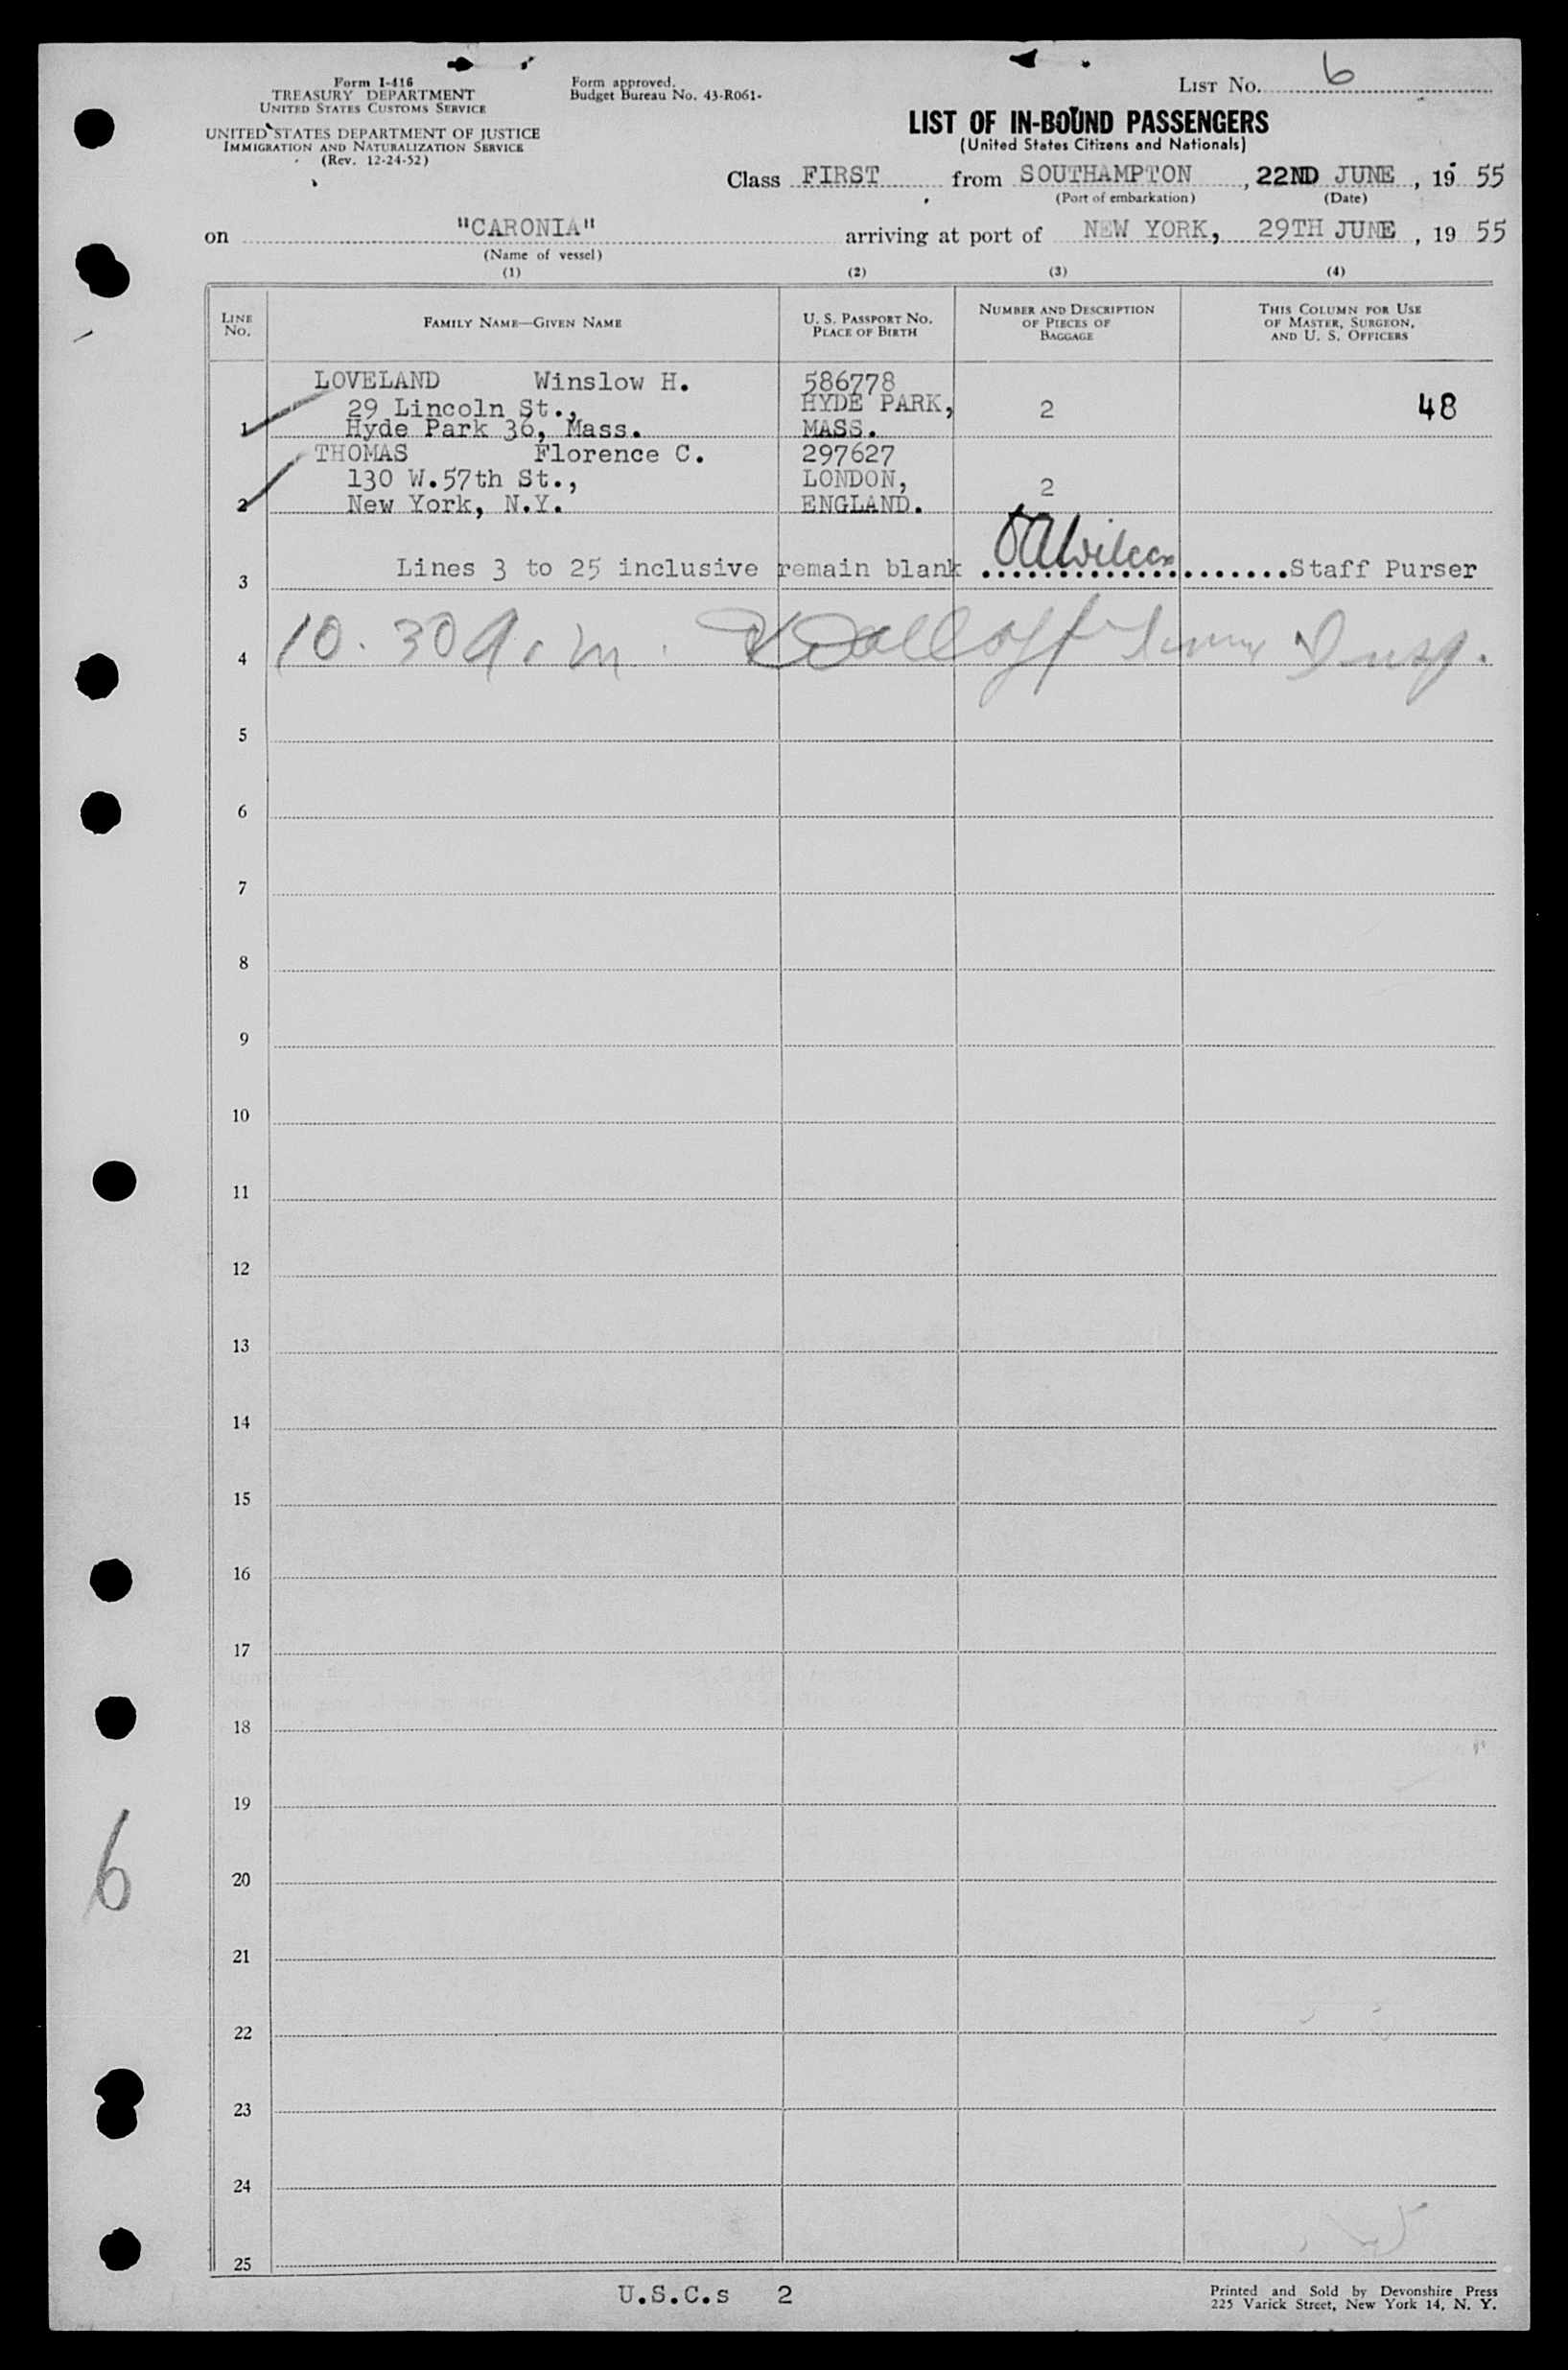 Form I-416
TREASURY DEPARTMENT
UNITED STATES CUSTOMS SERVICE
UNITED STATES DEPARTMENT OF JUSTICE
IMMIGRATION AND NATURALIZATION SERVICE
(Rev. 12-24-52)
Form approved.
Budget Bureau No. 43-R061-
LIST No. 6
LIST OF IN-BOUND PASSENGERS
(United States Citizens and Nationals)
Class FIRST from SOUTHAMPTON, 22ND JUNE, 19 55
(Port of embarkation) (Date)
on "CARONIA" arriving at port of NEW YORK, 29TH JUNE, 19 55
(Name of vessel)
(1) (2) (3) (4)
LINE No.
FAMILY NAME—GIVEN NAME
U. S. PASSPORT NO.
PLACE OF BIRTH
NUMBER AND DESCRIPTION
OF PIECES OF
BAGGAGE
THIS COLUMN FOR USE
OF MASTER, SURGEON,
AND U. S. OFFICERS
LOVELAND Winslow H. 586778
29 Lincoln St., HYDE PARK, 2 48
1 Hyde Park 36, Mass. MASS.
THOMAS Florence C. 297627
130 W.57th St., LONDON, 2
2 New York, N.Y. ENGLAND.
3 Lines 3 to 25 inclusive remain blank Wilcox Staff Purser
4 10.30 A.m. Insp.
5
6
7
8
9
10
11
12
13
14
15
16
17
18
19
6
20
21
22
23
24
25
U.S.C.s 2
Printed and Sold by Devonshire Press
225 Varick Street, New York 14, N. Y.